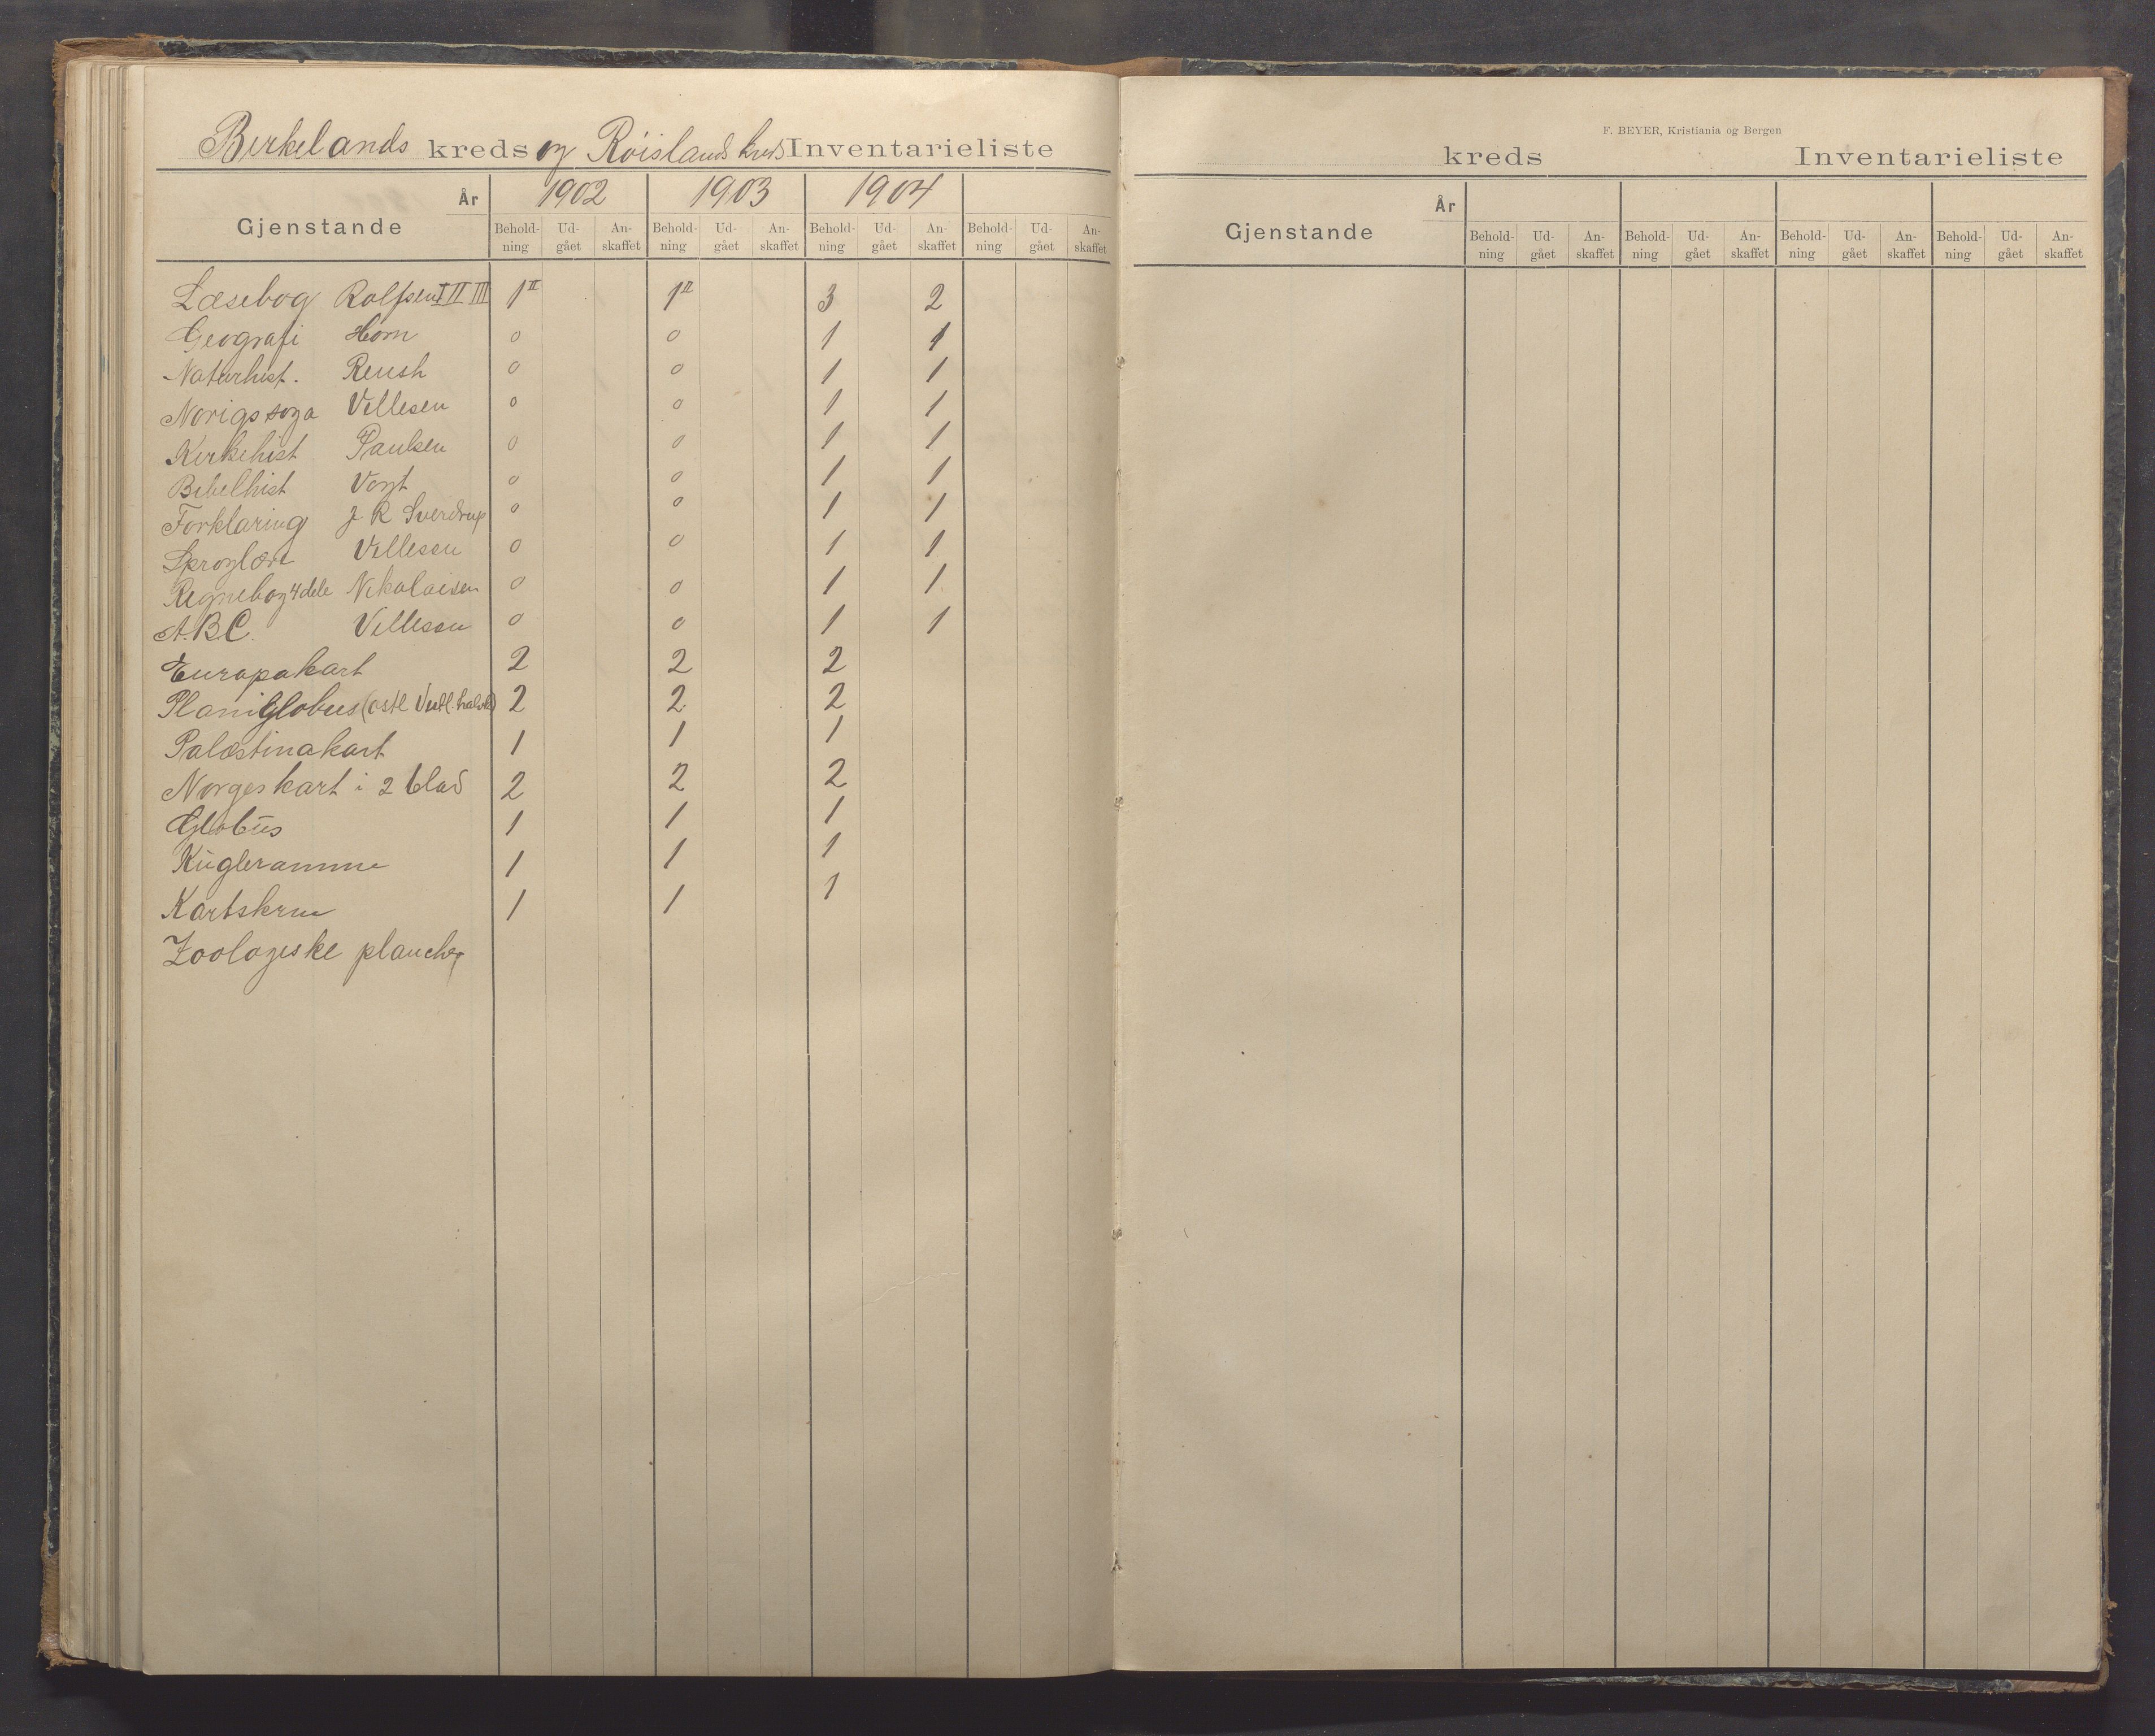 Birkelands kreds og Röislands kreds Inventarieliste
År 1902 1903 1904
Gjenstande Behold-ning Ud-gået An-skaffet Behold-ning Ud-gået An-skaffet Behold-ning Ud-gået An-skaffet Behold-ning Ud-gået An-skaffet
Læsebog Rolfsen I II III 1 II 1 II 3 2
Geografi Horn 0 0 1 1
Naturhist. Reush 0 0 1 1
Norigssoga Villesen 0 0 1 1
Kirkehist Paulsen 0 0 1 1
Bibelhist Vogt 0 0 1 1
Forklaring J. R Sverdrup 0 0 1 1
Sproglære Villesen 0 0 1 1
Regnebog 4 dele Nikolaisen 0 0 1 1
A.B.C. Villesen 0 0 1 1
Europakart 2 2 2
Planiglobus (østl Vestl. halvk) 2 2 2
Palæstinakart 1 1 1
Norgeskart i 2 blad 2 2 2
Globūs 1 1 1
Kūgleramme 1 1 1
Kartskrin 1 1 1
Zoologiske plancher
F. BEYER, Kristiania og Bergen
kreds Inventarieliste
År
Gjenstande Behold-ning Ud-gået An-skaffet Behold-ning Ud-gået An-skaffet Behold-ning Ud-gået An-skaffet Behold-ning Ud-gået An-skaffet